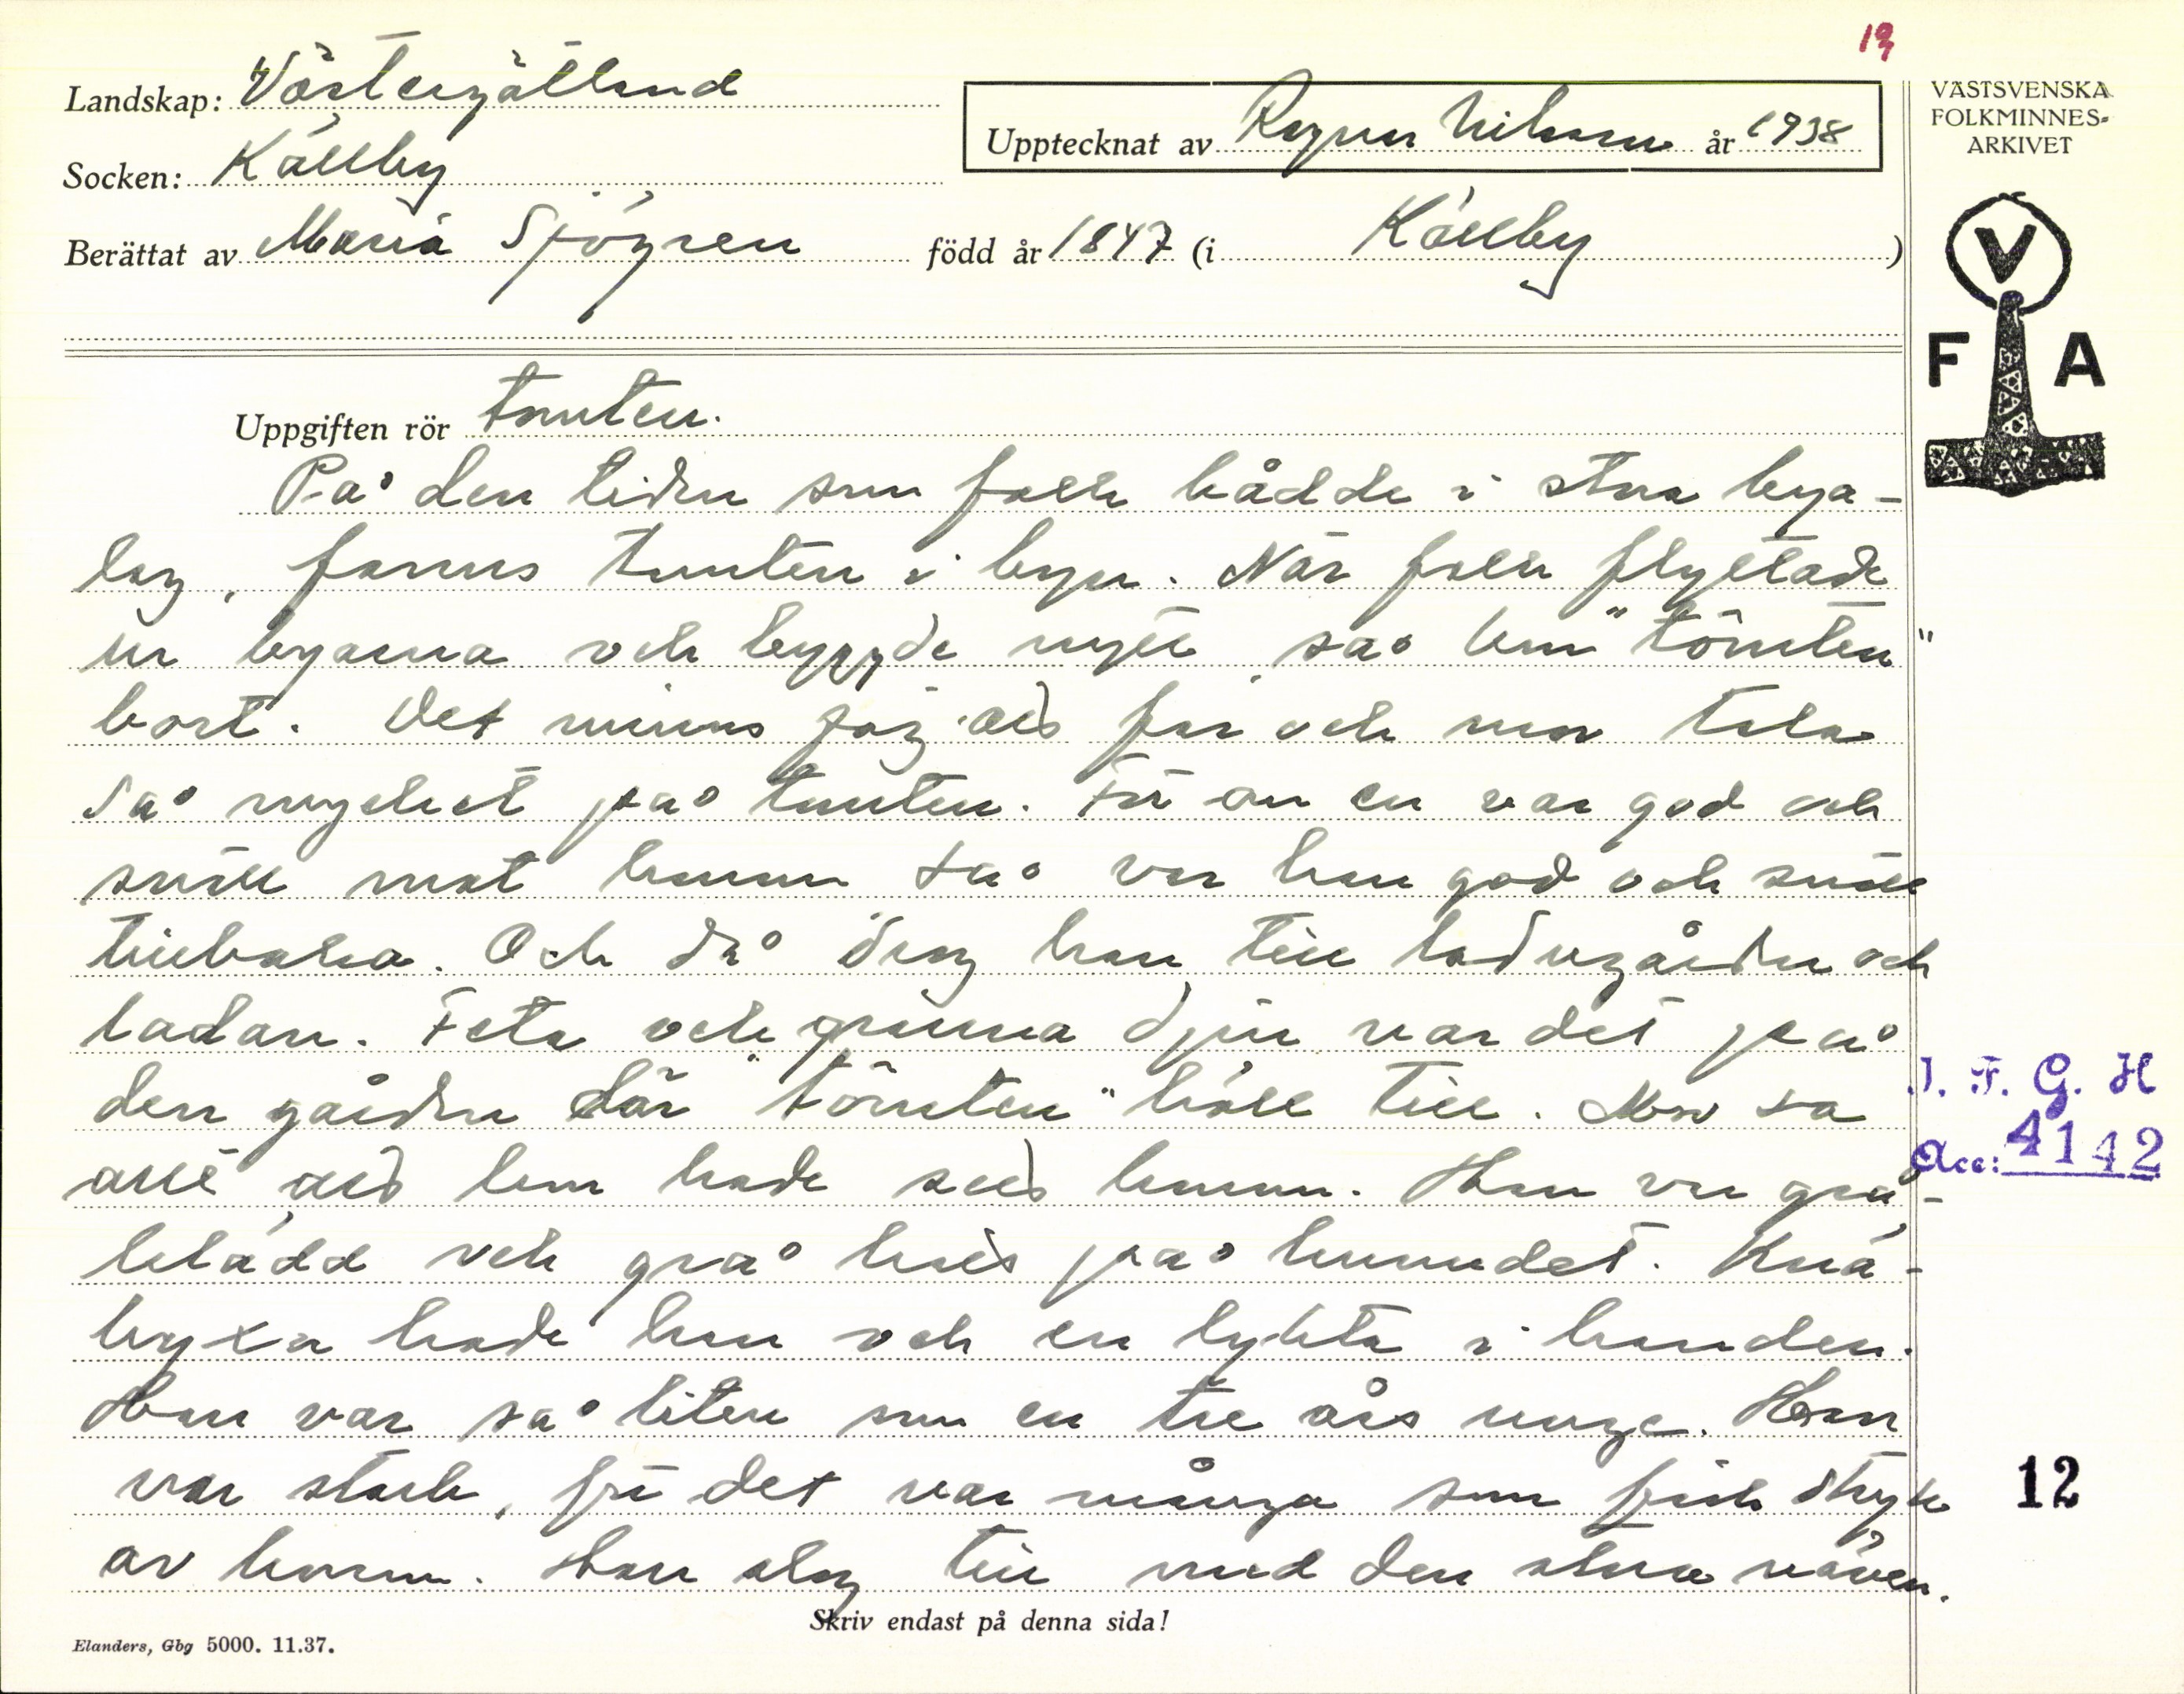 19
Landskap: Västergötland
Socken: Källby
Berättat av Maria Sjögren född år 1847 (i Källby)
Upptecknat av Ragnar Nilsson år 1938
VÄSTSVENSKA
FOLKMINNES-
ARKIVET
V
F A
Uppgiften rör tomten.
På den tiden som folk bådde i stora bya-
lag, fanns tomten i byn. När folk flyttade
ur byarna och byggde nytt, så ble "tömten"
bort. Det minns jag att far och mor tala
så mycket på tomten. För om en var god och
snäll mot honom så var han god och snäll
tillbaka. Och då drog han till ladugården och
ladan. Feta och granna djur var det på
den gården där "tömten" höll till. Mor sa
allt att hon hade sett honom. Han var grå-
klädd och grå hår på huvudet. Knä-
byxa hade han och en lykta i handen.
Han var så liten som en tre års unge. Han
var stark, för det var många som fick stryk
av honom. Han slog till med den stora näven.
I. F. G. H
Acc: 4142
12
Skriv endast på denna sida!
Elanders, Gbg 5000. 11.37.